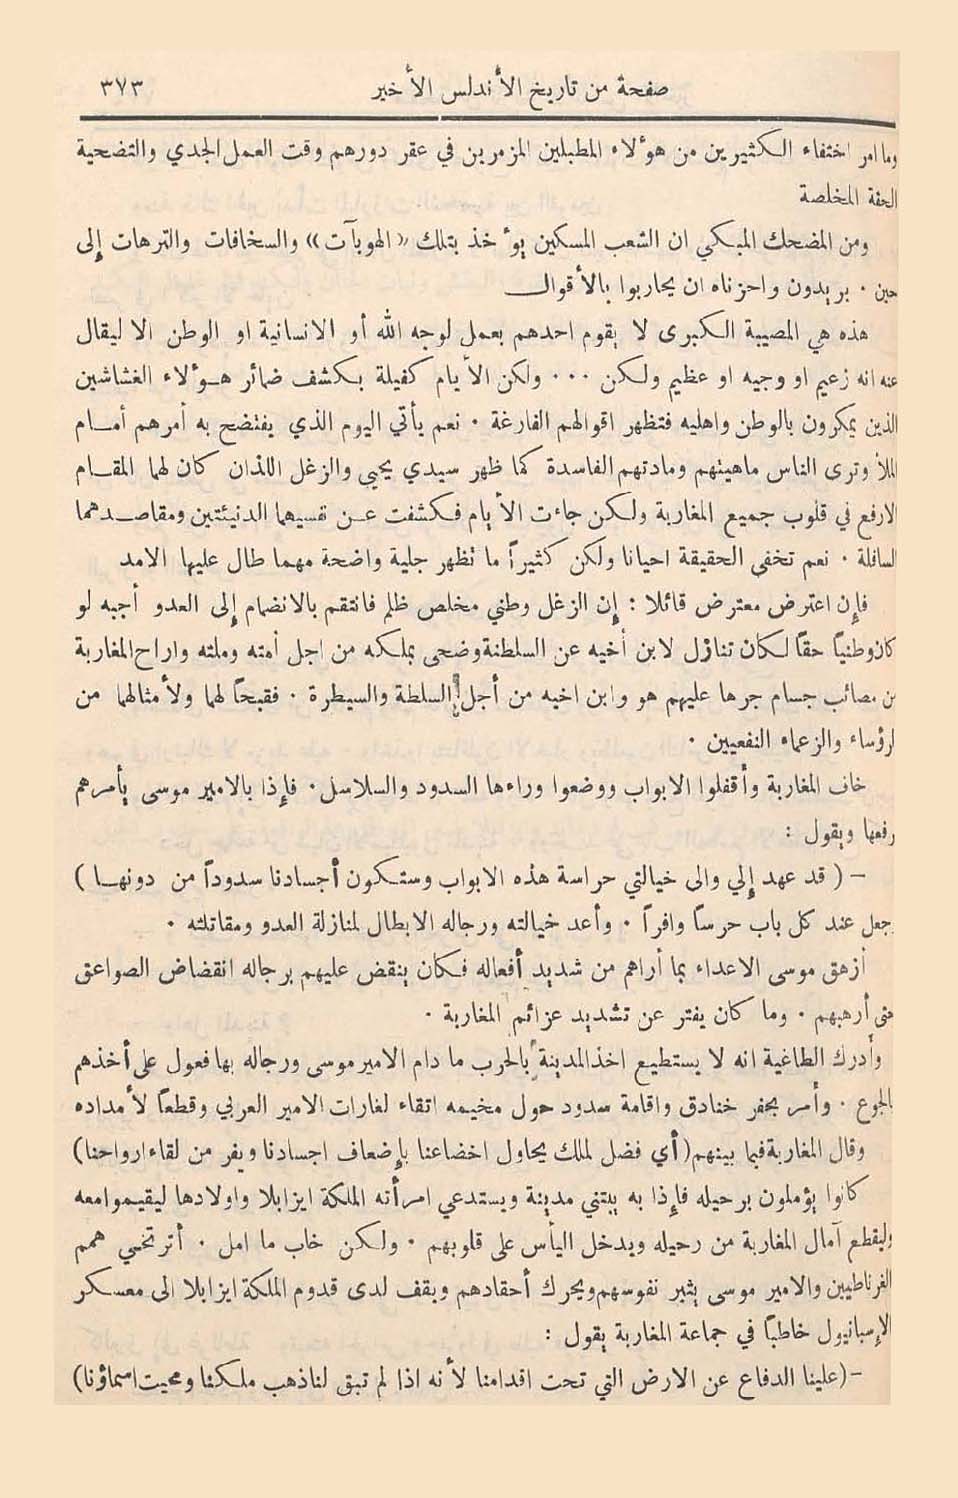 صفحة من تاريخ الأندلس الأخير ٣٧٣
وما امر اختفاء الكثيرين من هوٴلاء المطبلين المزمرين في عقر دورهم وقت العمل الجدي والتضحية
الحقة المخلصة
ومن المضحك المبكي ان الشعب المسكين يوٴخذ بتلك «الهوبآت» والسخافات والترهات إلى
حين . يريدون واحزناه ان يحاربوا بالأقوال
هذه هي المصيبة الكبرى لا يقوم احدهم بعمل لوجه الله أو الانسانية او الوطن الا ليقال
عنه انه زعيم او وجيه او عظيم ولكن ... ولكن الأيام كفيلة بكشف ضمائر هوٴلاء الغشاشين
الذين يمكرون بالوطن واهليه فتظهر اقوالهم الفارغة . نعم يأتي اليوم الذي يفتضح به أمرهم أمام
الملأ وترى الناس ماهيتهم ومادتهم الفاسدة كما ظهر سيدي يحيى والزغل اللذان كان لهما المقام
الارفع في قلوب جميع المغاربة ولكن جاءت الأيام فكشفت عن نفسيهما الدنيئتين ومقاصدهما
السافلة . نعم تخفى الحقيقة احيانا ولكن كثيراً ما تظهر جلية واضحة مهما طال عليها الامد
فإن اعترض معترض قائلا : إن الزغل وطني مخلص ظلم فانتقم بالانضمام إلى العدو أجبه لو
كان وطنياً حقاً لكان تنازل لابن أخيه عن السلطنة وضحى بملكه من اجل أمته وملته واراح المغاربة
من مصائب جسام جرها عليهم هو وابن اخيه من أجل السلطة والسيطرة . فقبحاً لهما ولأمثالهما من
الرؤساء والزعماء النفعيين .
خاف المغاربة وأقفلوا الابواب ووضعوا وراءها السدود والسلاسل . فإذا بالامير موسى يأمرهم
رفعها ويقول :
– ( قد عهد إلي والى خيالتي حراسة هذه الابواب وستكون أجسادنا سدوداً من دونها )
جعل عند كل باب حرساً وافراً . وأعد خيالته ورجاله الابطال لمنازلة العدو ومقاتلته .
أزهق موسى الاعداء بما أراهم من شديد أفعاله فكان ينقض عليهم برجاله انقضاض الصواعق
حتى أرهبهم . وما كان يفتر عن تشديد عزائم المغاربة .
وأدرك الطاغية انه لا يستطيع اخذ المدينة بالحرب ما دام الامير موسى ورجاله بها فعول على أخذهم
بالجوع . وأمر بحفر خنادق واقامة سدود حول مخيمه اتقاء لغارات الامير العربي وقطعاً لأمداده
وقال المغاربة فيما بينهم (أي فضل لملك يحاول اخضاعنا بإضعاف اجسادنا ويفر من لقاء ارواحنا)
كانوا يؤملون برحيله فإذا به يبتني مدينة ويستدعي امرأته الملكة ايزابلا واولادها ليقيموا معه
وليقطع آمال المغاربة من رحيله ويدخل اليأس على قلوبهم . ولكن خاب ما امل . أترتخي همم
الغرناطيين والامير موسى يثير نفوسهم ويحرك أحقادهم ويقف لدى قدوم الملكة ايزابلا الى معسكر
الإسبانيول خاطباً في جماعة المغاربة يقول :
– (علينا الدفاع عن الارض التي تحت اقدامنا لأنه اذا لم تبق لنا ذهب ملكنا ومحيت اسماؤنا)